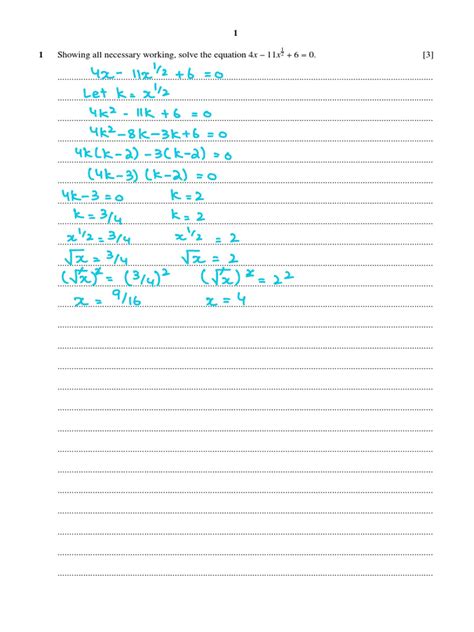 1
1 Showing all necessary working, solve the equation 4x – 11x^{1/2} + 6 = 0. [3]
4x - 11x^{1/2} + 6 = 0
Let k = x^{1/2}
4k² - 11k + 6 = 0
4k² - 8k - 3k + 6 = 0
4k(k-2) - 3(k-2) = 0
(4k-3) (k-2) = 0
4k-3 = 0 k = 2
k = 3/4 k = 2
x^{1/2} = 3/4 x^{1/2} = 2
√x = 3/4 √x = 2
(√x)² = (3/4)² (√x)² = 2²
x = 9/16 x = 4